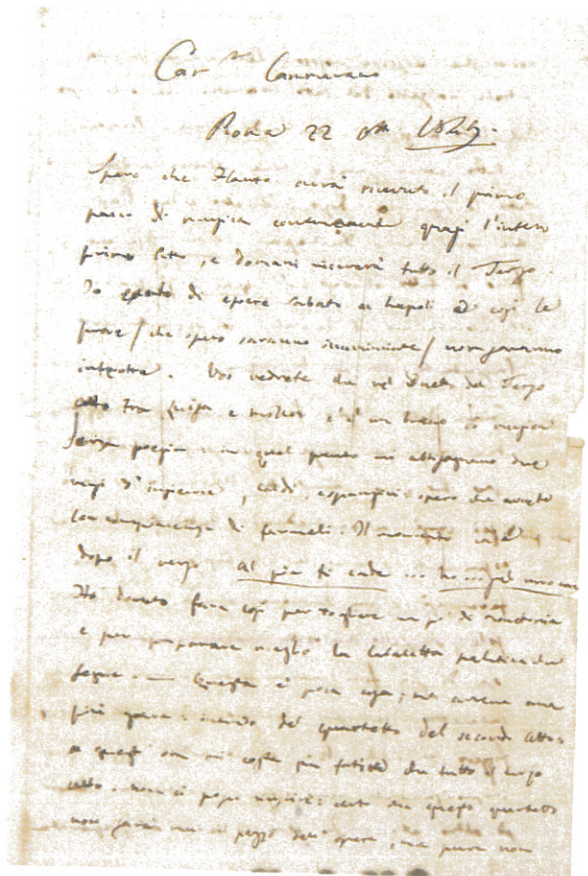 Car.mo Cammarano
Roma 22 8bre
Spero che Flauto avrà ricevuto il primo
pacco di musica contenente quasi l'intero
primo atto, e domani riceverà tutto il Terzo.
Io di essere sabato a Napoli e così le
prove / che spero saranno incominciate / non
. Voi vedrete che nel duetto del Terzo
atto tra Luisa e Miller c'è un
senza in quel punto due
versi d'insieme, caldi, spero che avrete
la compiacenza di farmeli. Il momento è
dopo il verso al piè ti cade ...
Ho dovuto fare così per togliere un po' di monotonia
e per preparare meglio la cabaletta che
segue. — Questa è poca cosa; ma
più grave: intendo del quartetto del secondo atto:
e questo mi costa più fatica che tutto il terzo
atto. non ci posso riuscire: certo che questo quartetto
non sarà mai il pezzo dell'opera, ma pure non